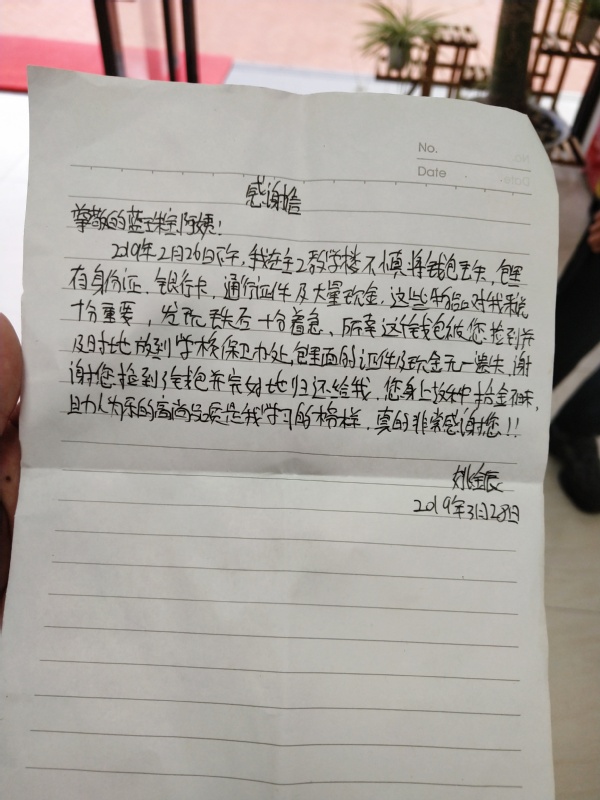 No.
Date
感谢信
尊敬的蓝玉阿姨!
2019年2月26日下午,我在主2教学楼不慎将钱包丢失,包里
有身份证、银行卡、通行证件及大量现金,这些物品对我来说
十分重要,发现丢失后十分着急,所幸这个钱包被您捡到并
及时地放到学校保卫办处,包里面的证件及现金无一遗失,谢
谢您捡到钱包并完好地归还给我,您身上这种拾金不昧,
助人为乐的高尚品质是我学习的榜样,真的非常感谢您!!
2019年3月28日